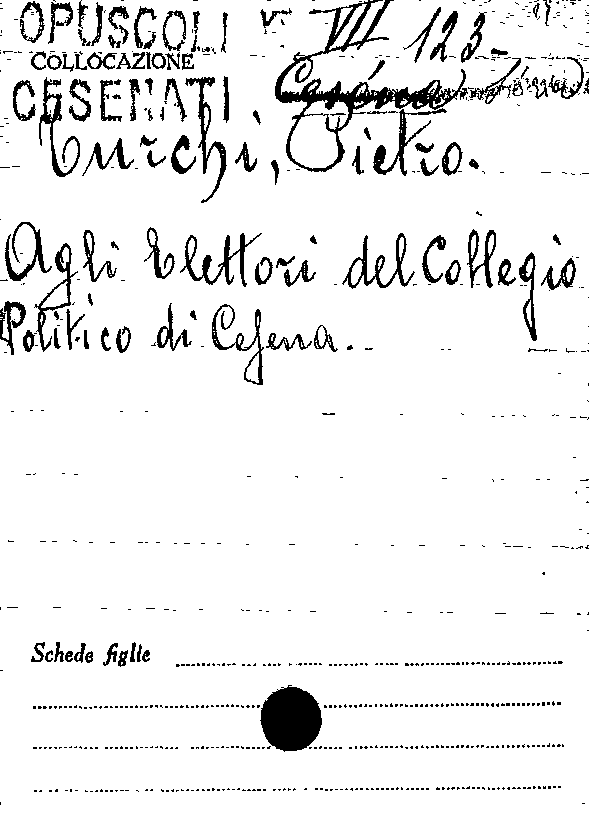 OPUSCOLI
COLLOCAZIONE
CESENATI
VII 123-
Cesena
Turchi, Pietro.
Agli Elettori del Collegio
Politico di Cesena.
Schede figlie